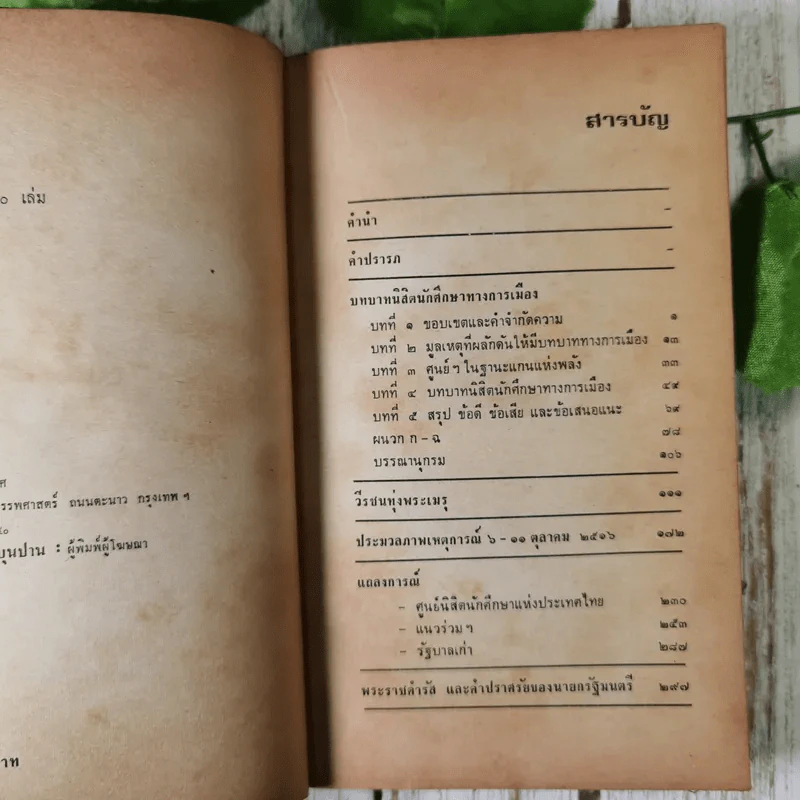 ๐ เล่ม
ศ
รรพศาสตร์ ถนนตะนาว กรุงเทพ ฯ
๔๐
บุนปาน : ผู้พิมพ์ผู้โฆษณา
าท
สารบัญ
คำนำ –
คำปรารภ –
บทบาทนิสิตนักศึกษาทางการเมือง
บทที่ ๑ ขอบเขตและคำจำกัดความ ๑
บทที่ ๒ มูลเหตุที่ผลักดันให้มีบทบาททางการเมือง ๑๓
บทที่ ๓ ศูนย์ ฯ ในฐานะแกนแห่งพลัง ๓๓
บทที่ ๔ บทบาทนิสิตนักศึกษาทางการเมือง ๔๙
บทที่ ๕ สรุป ข้อดี ข้อเสีย และข้อเสนอแนะ ๖๙
ผนวก ก – ฉ ๗๘
บรรณานุกรม ๑๐๖
วีรชนทุ่งพระเมรุ ๑๑๑
ประมวลภาพเหตุการณ์ ๖ – ๑๑ ตุลาคม ๒๕๑๖ ๑๗๒
แถลงการณ์
– ศูนย์นิสิตนักศึกษาแห่งประเทศไทย ๒๓๐
– แนวร่วม ฯ ๒๕๓
– รัฐบาลเก่า ๒๘๗
พระราชดำรัส และคำปราศรัยของนายกรัฐมนตรี ๒๙๗